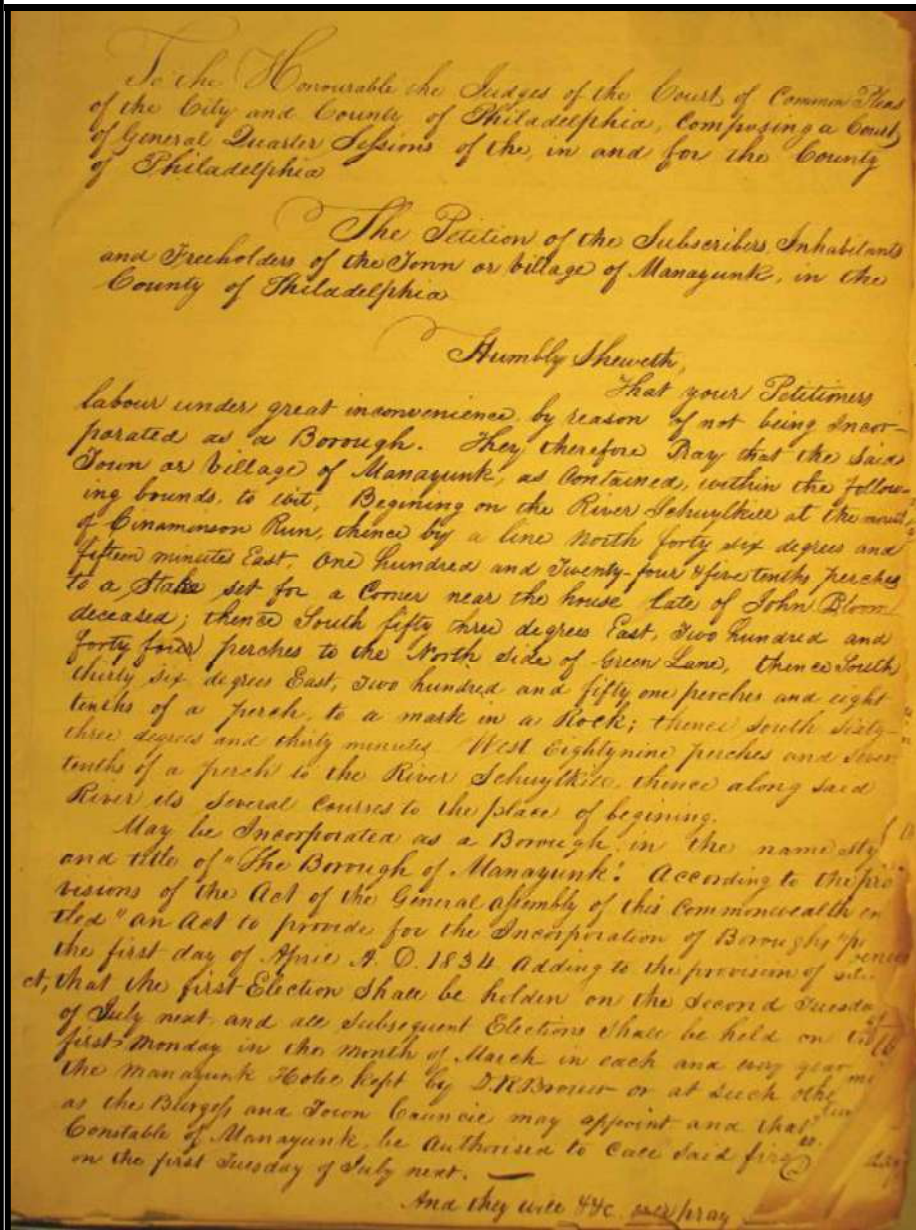 To the Honourable the Judges of the Court of Common Pleas
of the City and County of Philadelphia, Composing a Court
of General Quarter Sessions of the, in and for the County
of Philadelphia
The Petition of the Subscribers Inhabitants
and Freeholders of the Town or Village of Manayunk, in the
County of Philadelphia
Humbly Sheweth,
That your Petitioners
labour under great inconvenience, by reason of not being Incor-
porated as a Borough. They therefore Pray that the Said
Town or Village of Manayunk, as Contained, within the follow-
ing bounds, to wit, Begining on the River Schuylkill at the mouth
of Cinaminson Run, thence by a line North forty six degrees and
fifteen minutes East, One hundred and Twenty-four & five tenths perches
to a Stake set for a Corner near the house late of John Bloom
deceased; thence South fifty three degrees East, Two hundred and
forty four perches to the North Side of Green Lane, thence South
thirty six degrees East, Two hundred and fifty one perches and eight
tenths of a perch, to a mark in a Rock; thence South Sixty-
three degrees and thirty minutes West Eightynine perches and seven
tenths of a perch to the River Schuylkill, thence along said
River its several Courses to the place of begining.
May be Incorporated as a Borough in the name style
and title of "The Borough of Manayunk". According to the pro
visions of the Act of the General assembly of this Commonwealth en
tled "an Act to provide for the Incorporation of Boroughs"
the first day of April A.D. 1834 Adding to the provision of
ct, that the first Election Shall be holden on the Second Tuesda
of July next and all Subsequent Elections Shall be held on
first Monday in the Month of March in each and every year
the Manayunk Hotel kept by D.R. Brower or at such othe
as the Burgess and Town Council may appoint and that
Constable of Manayunk, be Authorised to Call Said first
on the first Tuesday of July next.
And they will &c. ever pray